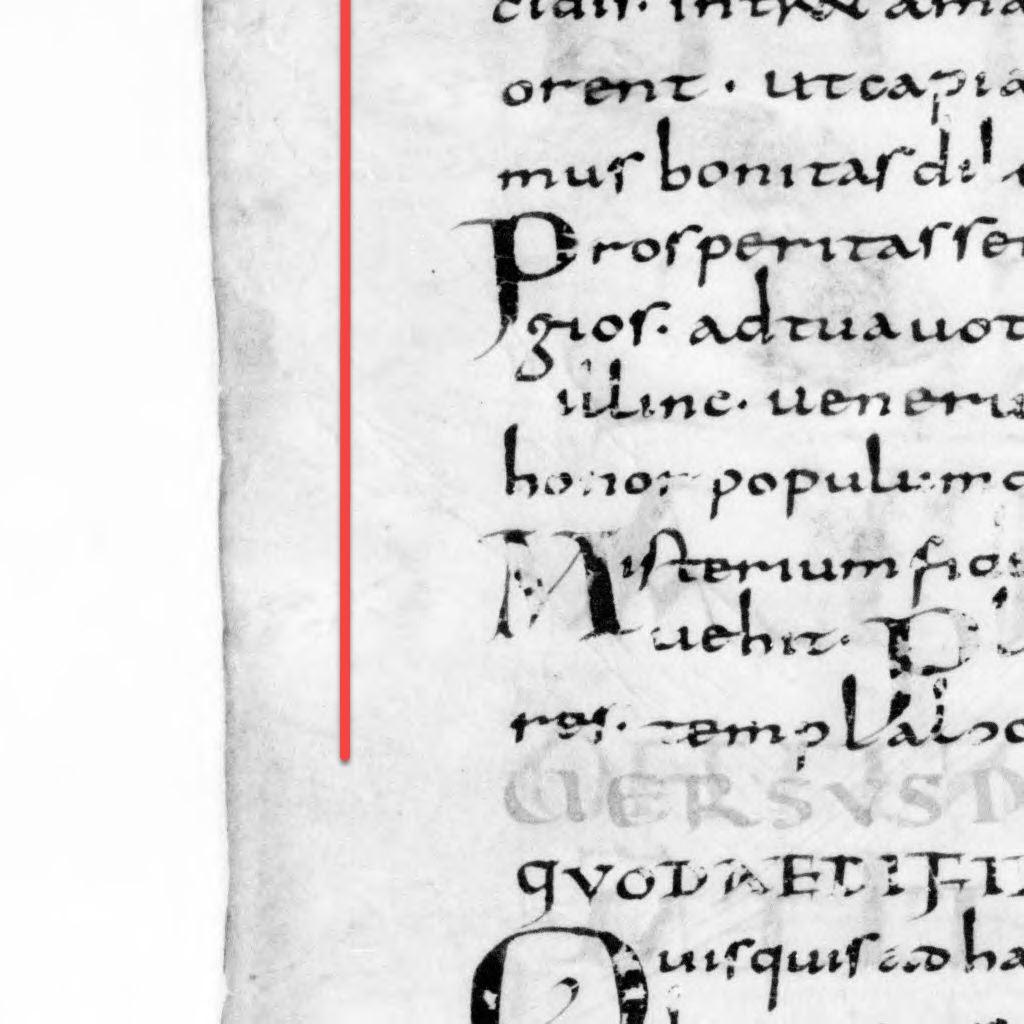 cidis· intret ama
orent · ut capia
mus bonitas di
Prosperitas se
gios· ad tua uot
illinc· ueneru
honor populum
Misterium
uehit· P
ros· templa
VERSVS D
QVOD AEDIFI
Quisquis ad ha